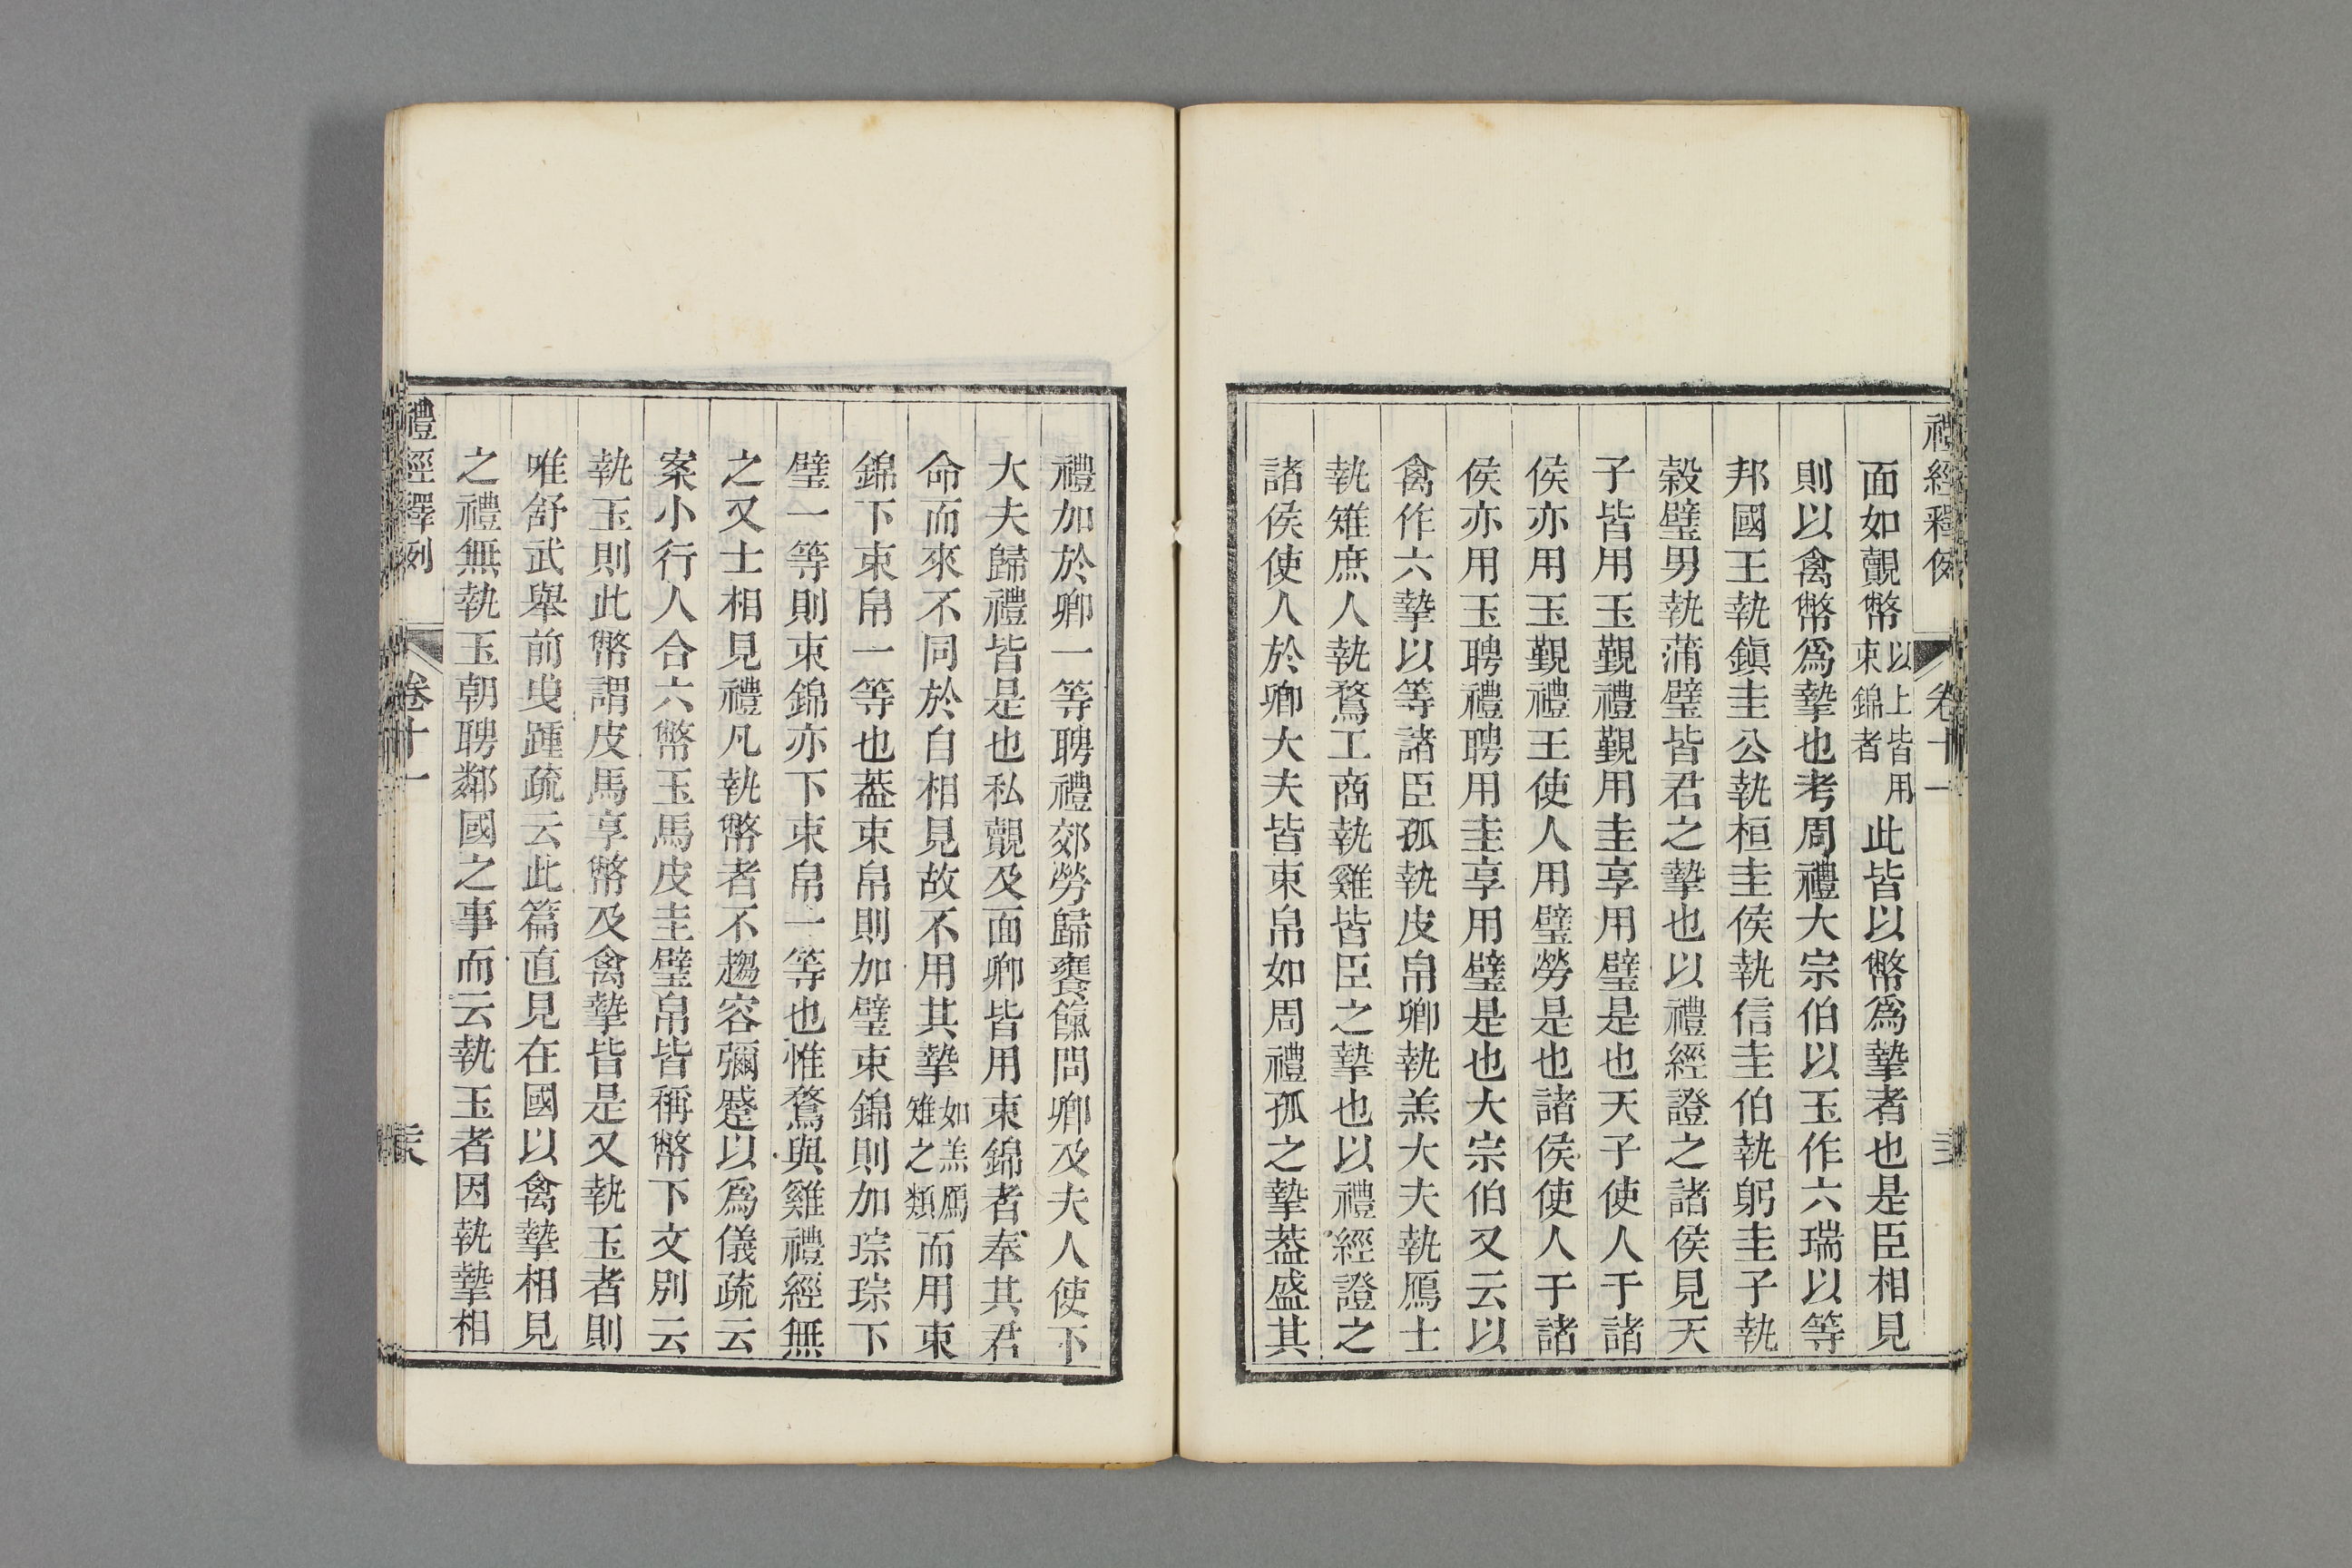 禮經釋例 卷十一
面如覿幣以上皆用束錦者此皆以幣爲摯者也是臣相見
則以禽幣爲摯也考周禮大宗伯以玉作六瑞以等
邦國王執鎭圭公執桓圭侯執信圭伯執躬圭子執
穀璧男執蒲璧皆君之摯也以禮經證之諸侯見天
子皆用玉覲禮覲用圭享用璧是也天子使人于諸
侯亦用玉覲禮王使人用璧勞是也諸侯使人于諸
侯亦用玉聘禮聘用圭享用璧是也大宗伯又云以
禽作六摯以等諸臣孤執皮帛卿執羔大夫執鴈士
執雉庶人執鶩工商執雞皆臣之摯也以禮經證之
諸侯使人於卿大夫皆束帛如周禮孤之摯葢盛其
禮加於卿一等聘禮郊勞歸饔餼問卿及夫人使下
大夫歸禮皆是也私覿及面卿皆用束錦者奉其君
命而來不同於自相見故不用其摯如羔鴈雉之類而用束
錦下束帛一等也葢束帛則加璧束錦則加琮琮下
璧一等則束錦亦下束帛一等也惟鶩與雞禮經無
之又士相見禮凡執幣者不趨容彌蹙以爲儀疏云
案小行人合六幣玉馬皮圭璧帛皆稱幣下文別云
執玉則此幣謂皮馬享幣及禽摯皆是又執玉者則
唯舒武舉前曳踵疏云此篇直見在國以禽摯相見
之禮無執玉朝聘鄰國之事而云執玉者因執摯相
禮經釋例 卷十一